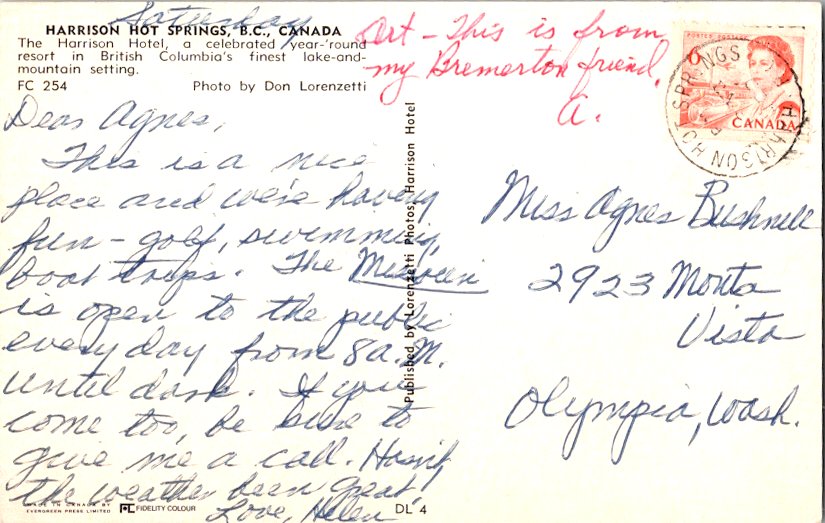 Saturday
HARRISON HOT SPRINGS, B.C., CANADA
The Harrison Hotel, a celebrated year-'round
resort in British Columbia's finest lake-and-
mountain setting.
FC 254 Photo by Don Lorenzetti
Art - This is from
my Bremerton friend,
A.
POSTES POSTAGE
6
CANADA
HARRISON HOT SPRINGS
Dear Agnes,
This is a nice
place and we're having
fun - golf, swimming,
boat trips. The
is open to the public
every day from 8 a.M.
until dark. If you
come too, be sure to
give me a call. Hasn't
the weather been great
Love, Helen
Published by Lorenzetti Photos, Harrison Hotel
Miss Agnes Bushnell
2923 Monta
Vista
Olympia, Wash.
MADE IN CANADA BY
EVERGREEN PRESS LIMITED
FIDELITY COLOUR
DL 4